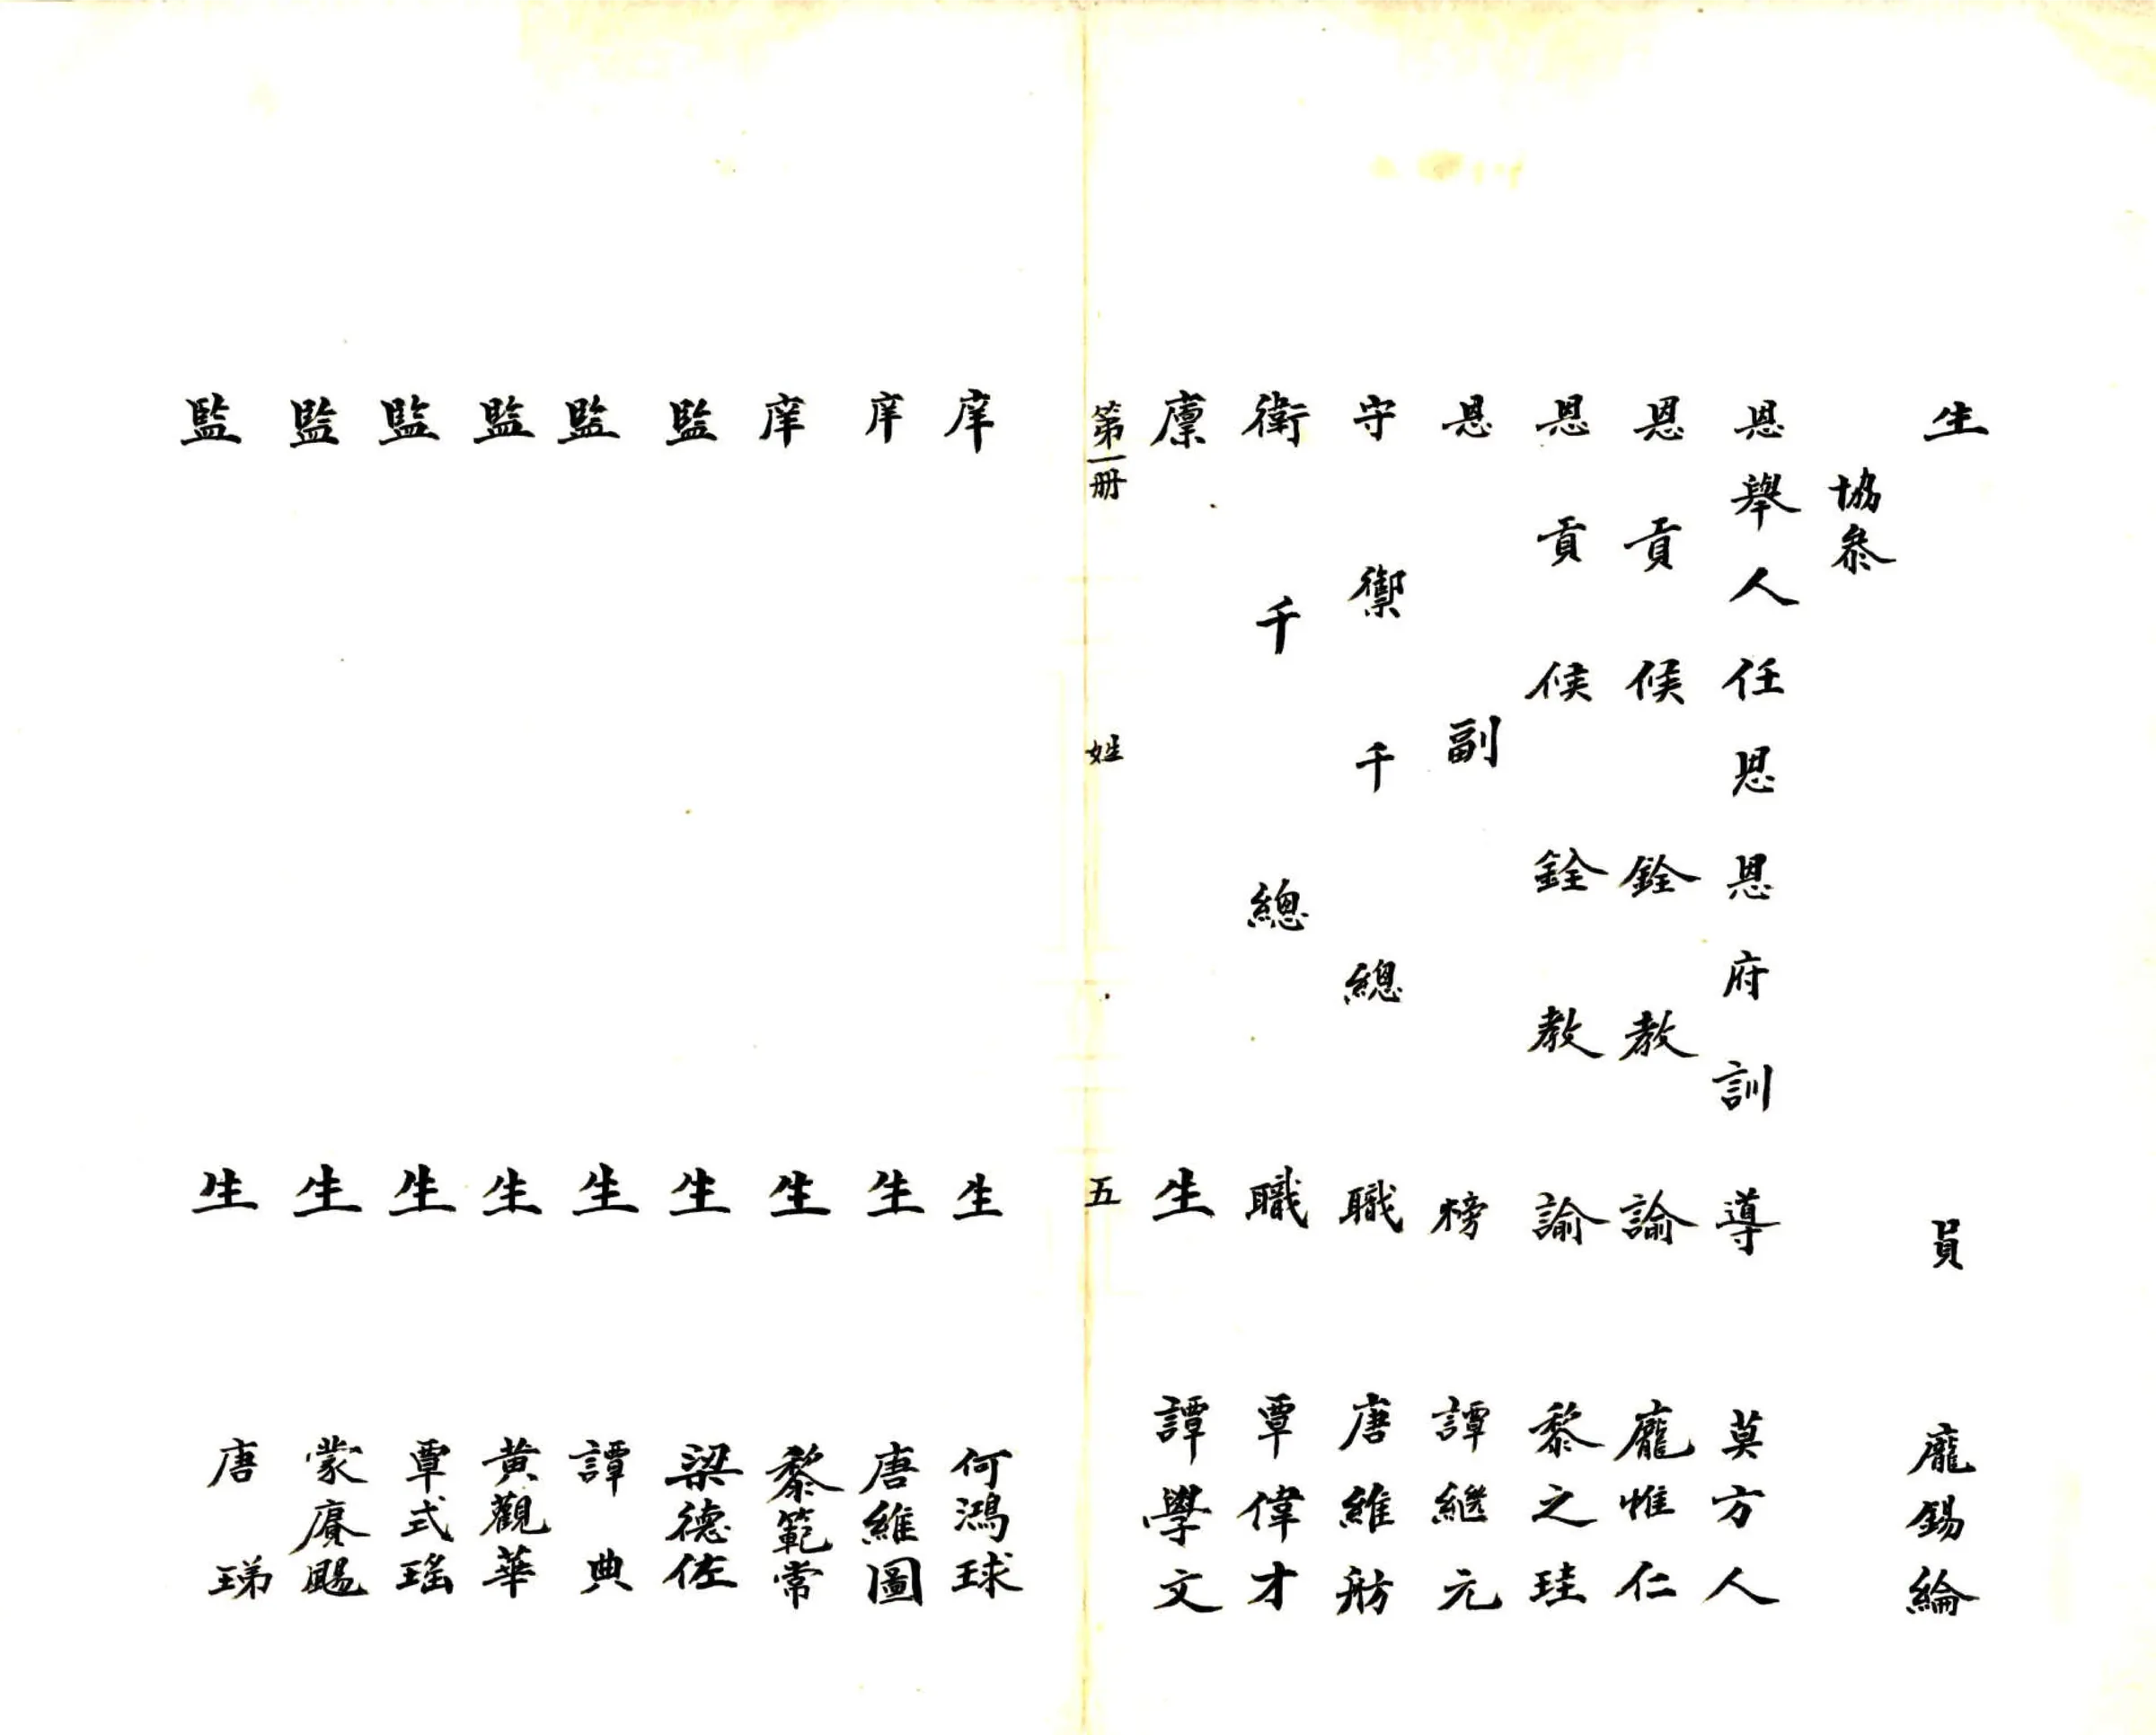 生員 龐錫綸
協叅
恩舉人任思恩府訓導 莫方人
恩貢候銓教諭 龐惟仁
恩貢候銓教諭 黎之珪
恩副榜 譚繼元
守禦千總職 唐維舫
衛千總職 覃偉才
廪生 譚學文
第一册 姓 五
庠生 何鴻球
庠生 唐維圖
庠生 黎範常
監生 梁德佐
監生 譚典
監生 黃觀華
監生 覃式瑤
監生 蒙賡颺
監生 唐珶